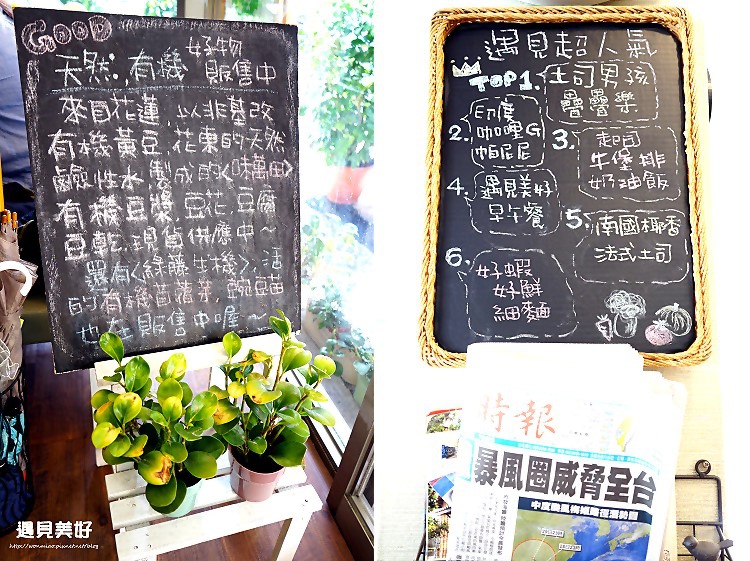 GOOD
好物
天然.有機 販售中
來自花蓮 以非基改
有機黃豆.花東的天然
鹼性水.製成的<味萬田>
有機豆漿.豆花.豆腐
豆乾.現貨供應中~
還有<綠藤生機>.活
的有機苜蓿芽.豌豆苗
也在販售中喔~
遇見美好
遇見超人氣
TOP 1. 土司男孩
疊疊樂
2. 印度
咖哩G
帕尼尼
3. 起司
牛堡排
奶油飯
4. 遇見美好
早午餐
5. 南國椰香
法式土司
6. 好蝦
好鮮
細麵
時報
暴風圈威脅全台